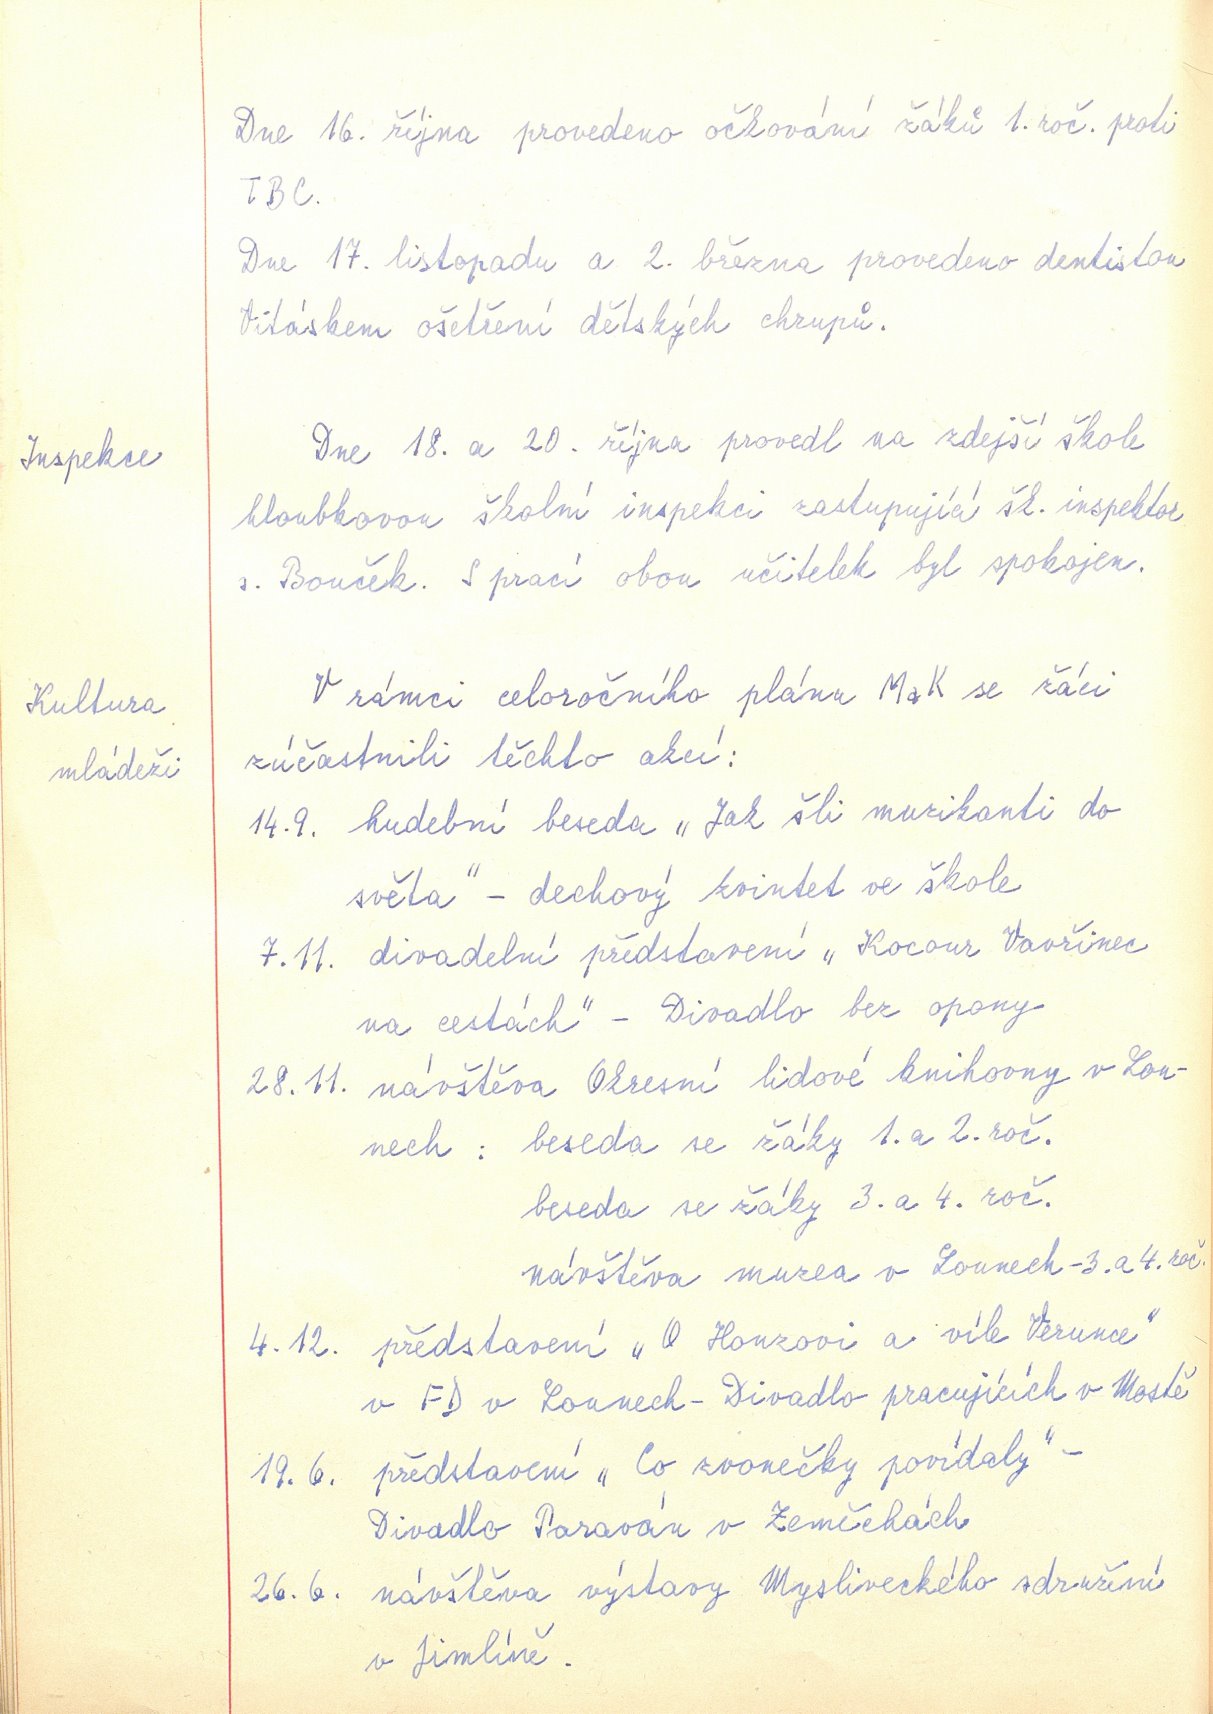 Dne 16. října provedeno očkování žáků 1. roč. proti
TBC.
Dne 17. listopadu a 2. března provedeno dentistou
Vitáskem ošetření dětských chrupů.
Inspekce
Dne 18. a 20. října provedl na zdejší škole
hloubkovou školní inspekci zastupující šk. inspektor
s. Bouček. S prací obou učitelek byl spokojen.
Kultura
mládeži
V rámci celoročního plánu MaK se žáci
zúčastnili těchto akcí:
14.9. hudební beseda „Jak šli muzikanti do
světa" – dechový kvintet ve škole
7.11. divadelní představení „Kocour Vavřinec
na cestách" – Divadlo bez opony
28.11. návštěva Okresní lidové knihovny v Lou-
nech : beseda se žáky 1. a 2. roč.
beseda se žáky 3. a 4. roč.
návštěva muzea v Lounech – 3. a 4. roč.
4.12. představení „O Honzovi a víle Verunce"
v FD v Lounech – Divadlo pracujících v Mostě
19.6. představení „Co zvonečky povídaly" –
Divadlo Paraván v Zeměchách
26.6. návštěva výstavy Mysliveckého sdružení
v Jimlíně.